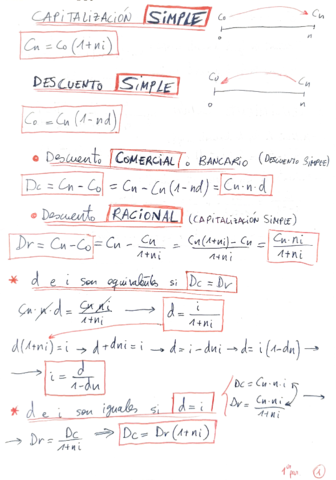 CAPITALIZACIÓN SIMPLE
Co Cn
Cn = Co (1+ni)
o n
DESCUENTO SIMPLE
Co Cn
o n
Co = Cn (1-nd)
• Descuento COMERCIAL o BANCARIO (DESCUENTO SIMPLE)
Dc = Cn - Co = Cn - Cn (1-nd) = Cn·n·d
• Descuento RACIONAL (CAPITALIZACIÓN SIMPLE)
Dr = Cn - Co = Cn - Cn/1+ni = Cn(1+ni) - Cn/1+ni = Cn·ni/1+ni
* d e i son equivalentes si Dc = Dr
Cn·n·d = Cn·ni/1+ni → d = i/1+ni
d(1+ni) = i → d + dni = i → d = i - dni → d = i (1-dn) →
→ i = d/1-dn
* d e i son iguales si d = i
Dc = Cn·n·i
Dr = Cn·ni/1+ni →
→ Dr = Dc/1+ni ⇒ Dc = Dr (1+ni)
1